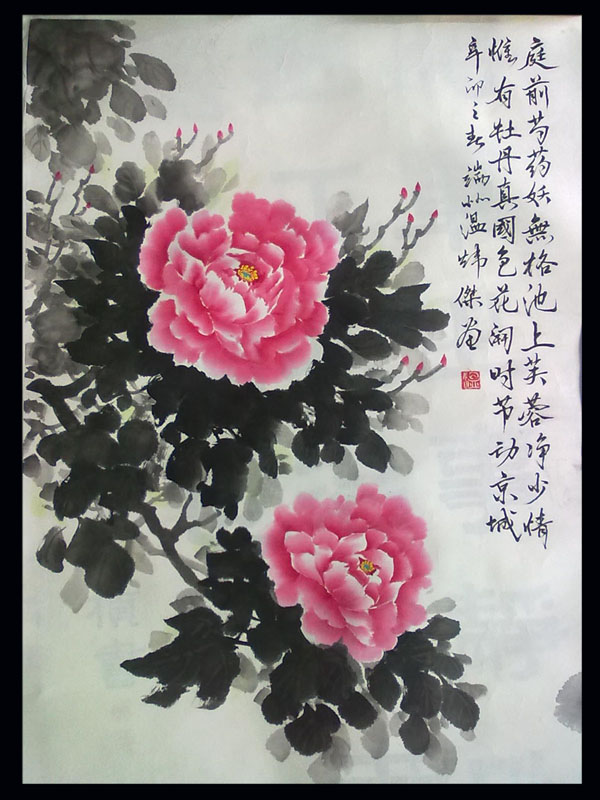 庭前芍药妖無格池上芙蓉净少情
惟有牡丹真國色花開时节动京城
辛卯之春端州温炜傑画